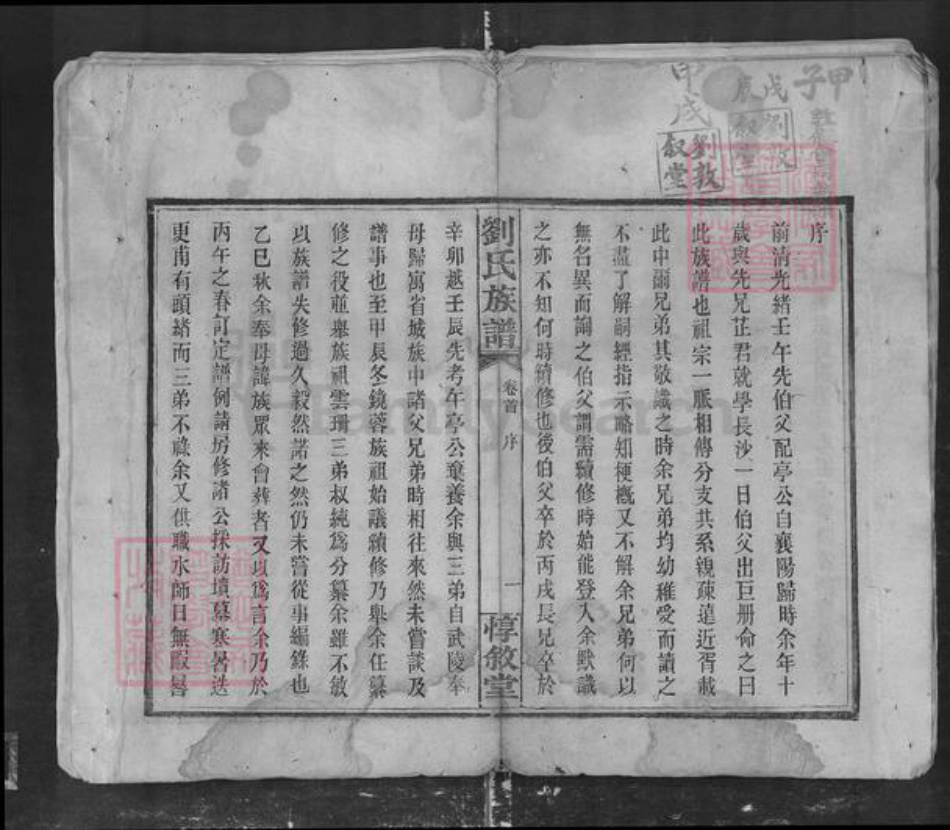 甲子
戊辰
甲戌
劉敦叙堂
劉敦叙堂
序
前清光緒壬午先伯父配亭公自襄陽歸時余年十
歲與先兄芷君就學長沙一日伯父出巨册命之曰
此族譜也祖宗一脈相傳分支共系親疎遠近胥載
此中爾兄弟其敬識之時余兄弟均幼稚受而讀之
不盡了解嗣經指示略知梗概又不解余兄弟何以
無名異而詢之伯父謂需續修時始能登入余默識
之亦不知何時續修也後伯父卒於丙戌長兄卒於
劉氏族譜
卷首
序
一
惇敘堂
辛卯越壬辰先考午亭公棄養余與三弟自武陵奉
母歸寓省城族中諸父兄弟時相往來然未嘗談及
譜事也至甲辰冬鏡蓉族祖始議續修乃舉余任纂
修之役並舉族祖雲珊三弟叔純爲分纂余雖不敏
以族譜失修過久毅然諾之然仍未嘗從事編錄也
乙巳秋余奉母諱族眾來會葬者又以爲言余乃於
丙午之春訂定譜例請房修諸公採訪墳墓寒暑迭
更甫有頭緒而三弟不祿余又供職水師日無暇晷